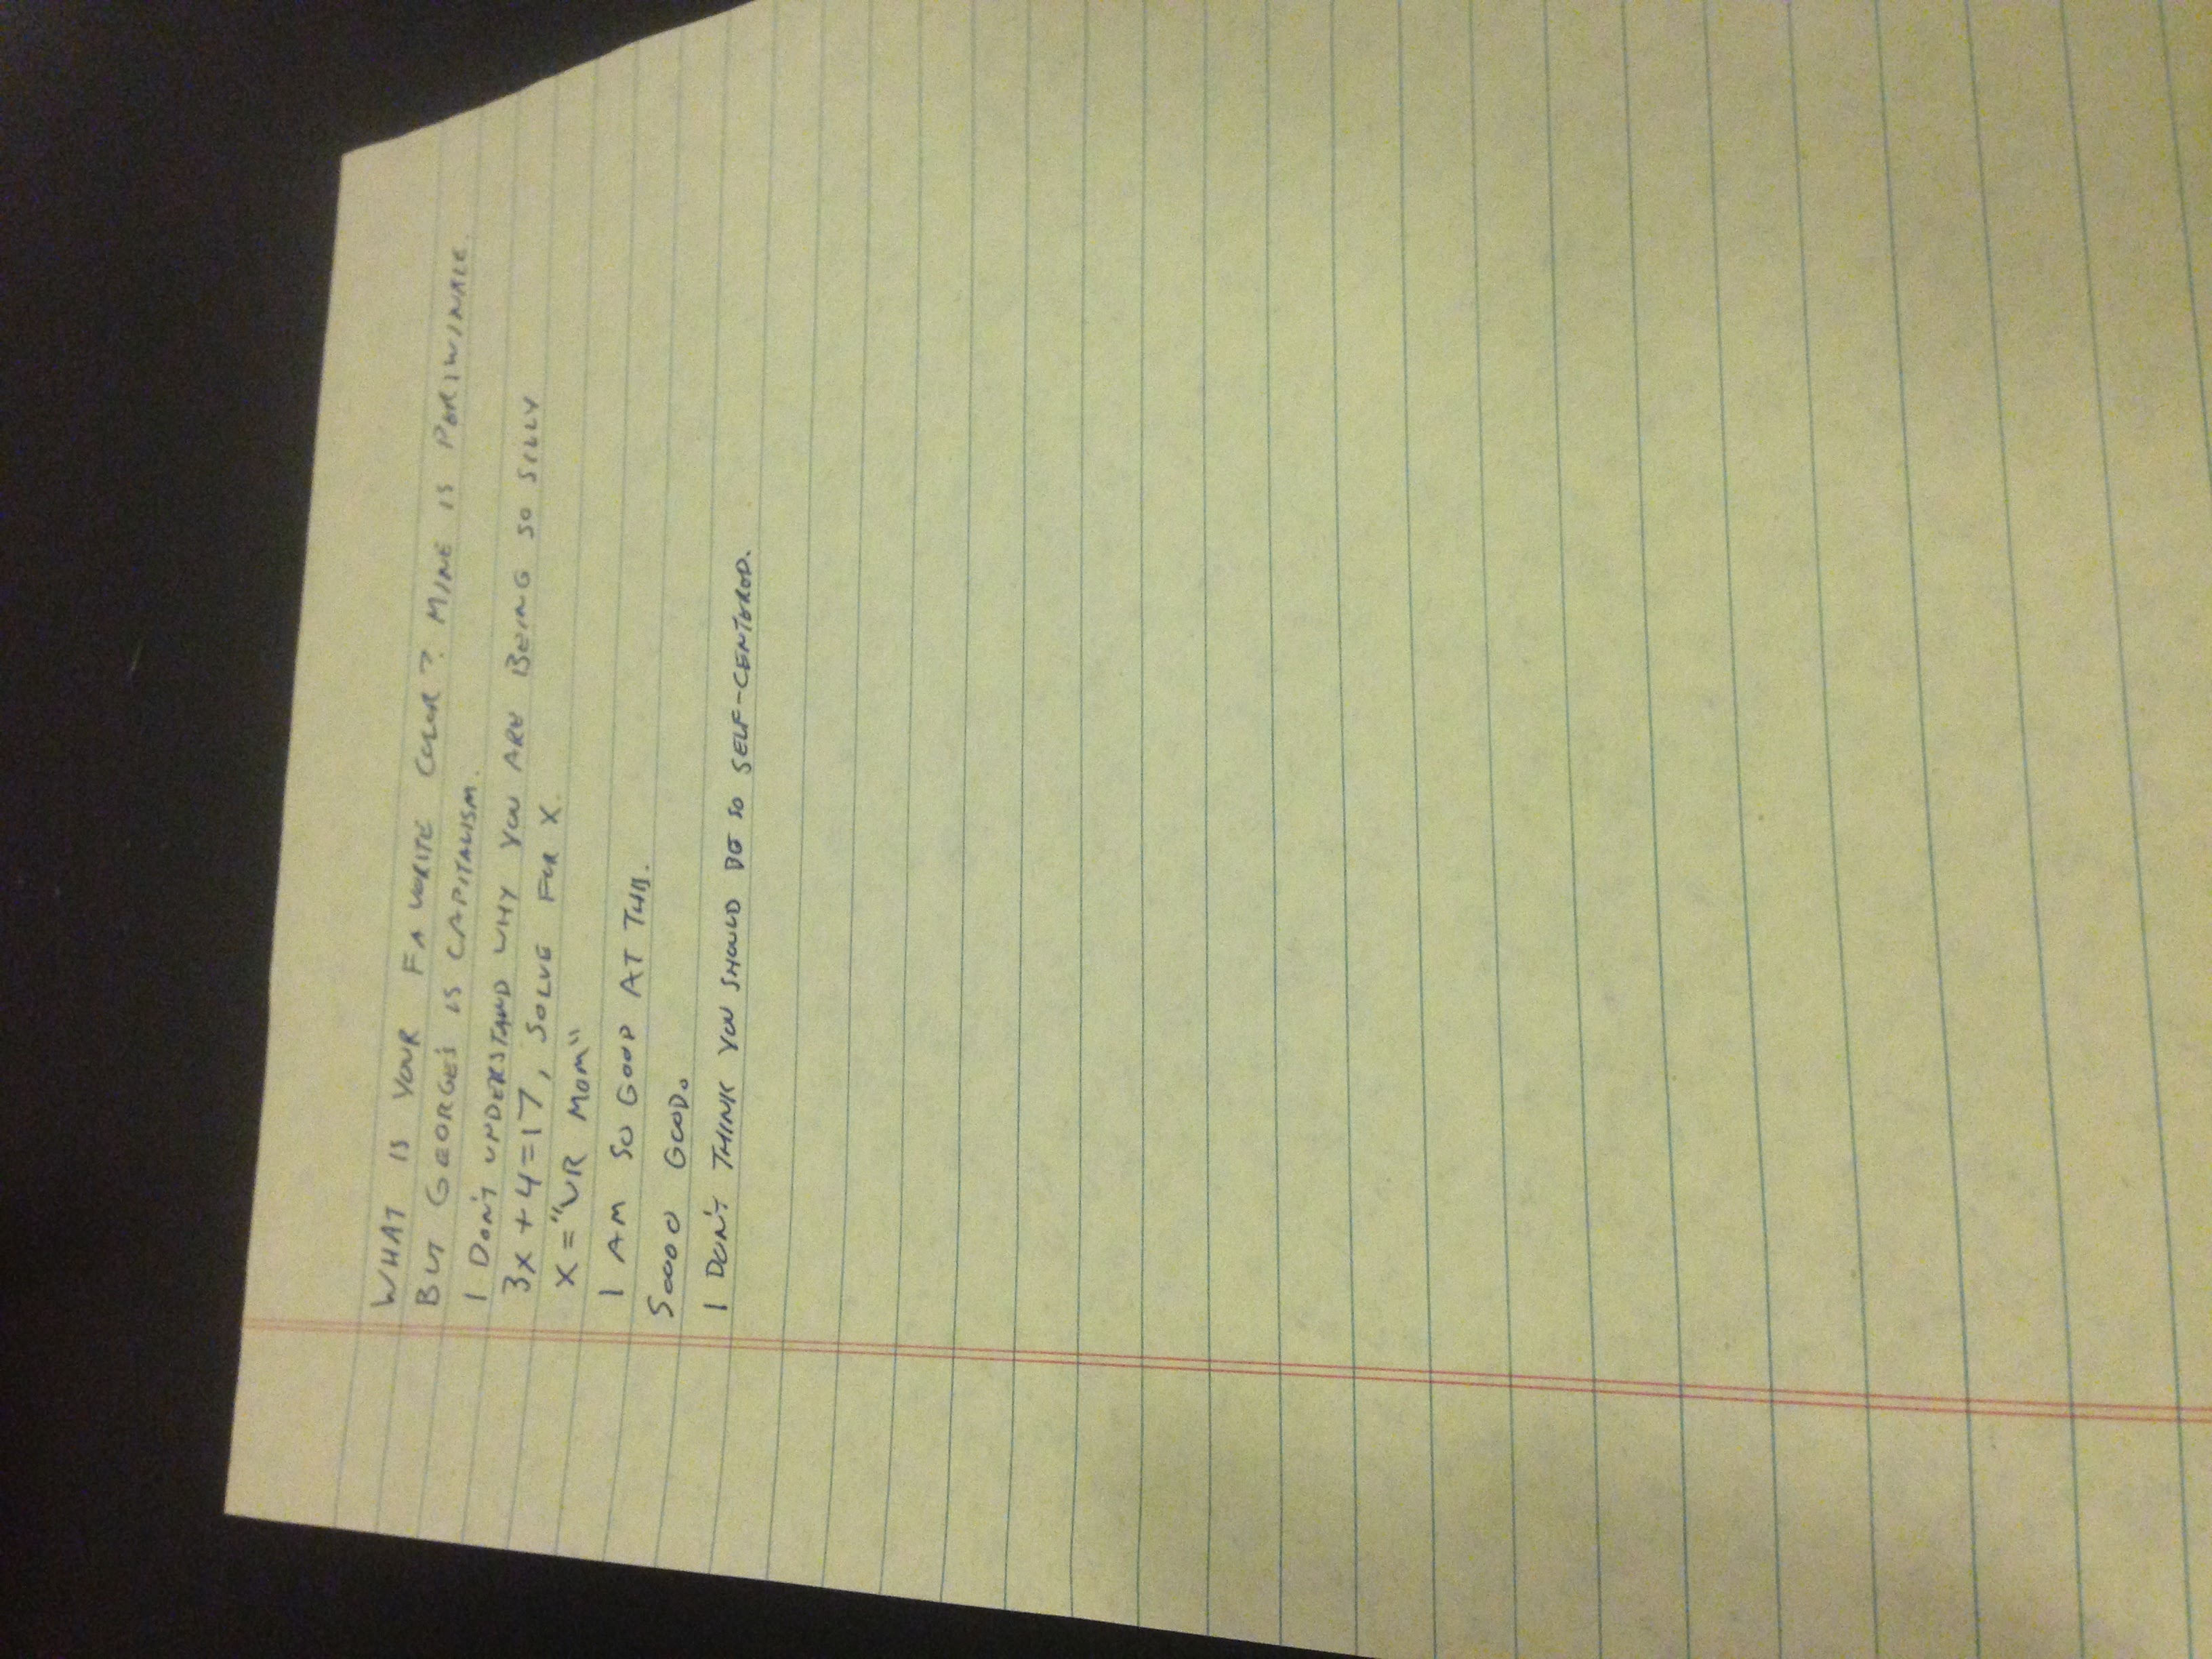 WHAT IS YOUR FAVORITE COLOR? MINE IS PERIWINKLE.
BUT GEORGE'S IS CAPITALISM.
I DON'T UNDERSTAND WHY YOU ARE BEING SO SILLY
3X+4=17, SOLVE FOR X.
X="UR MOM"
I AM SO GOOD AT THIS.
SOOOO GOOD.
I DON'T THINK YOU SHOULD BE SO SELF-CENTERED.